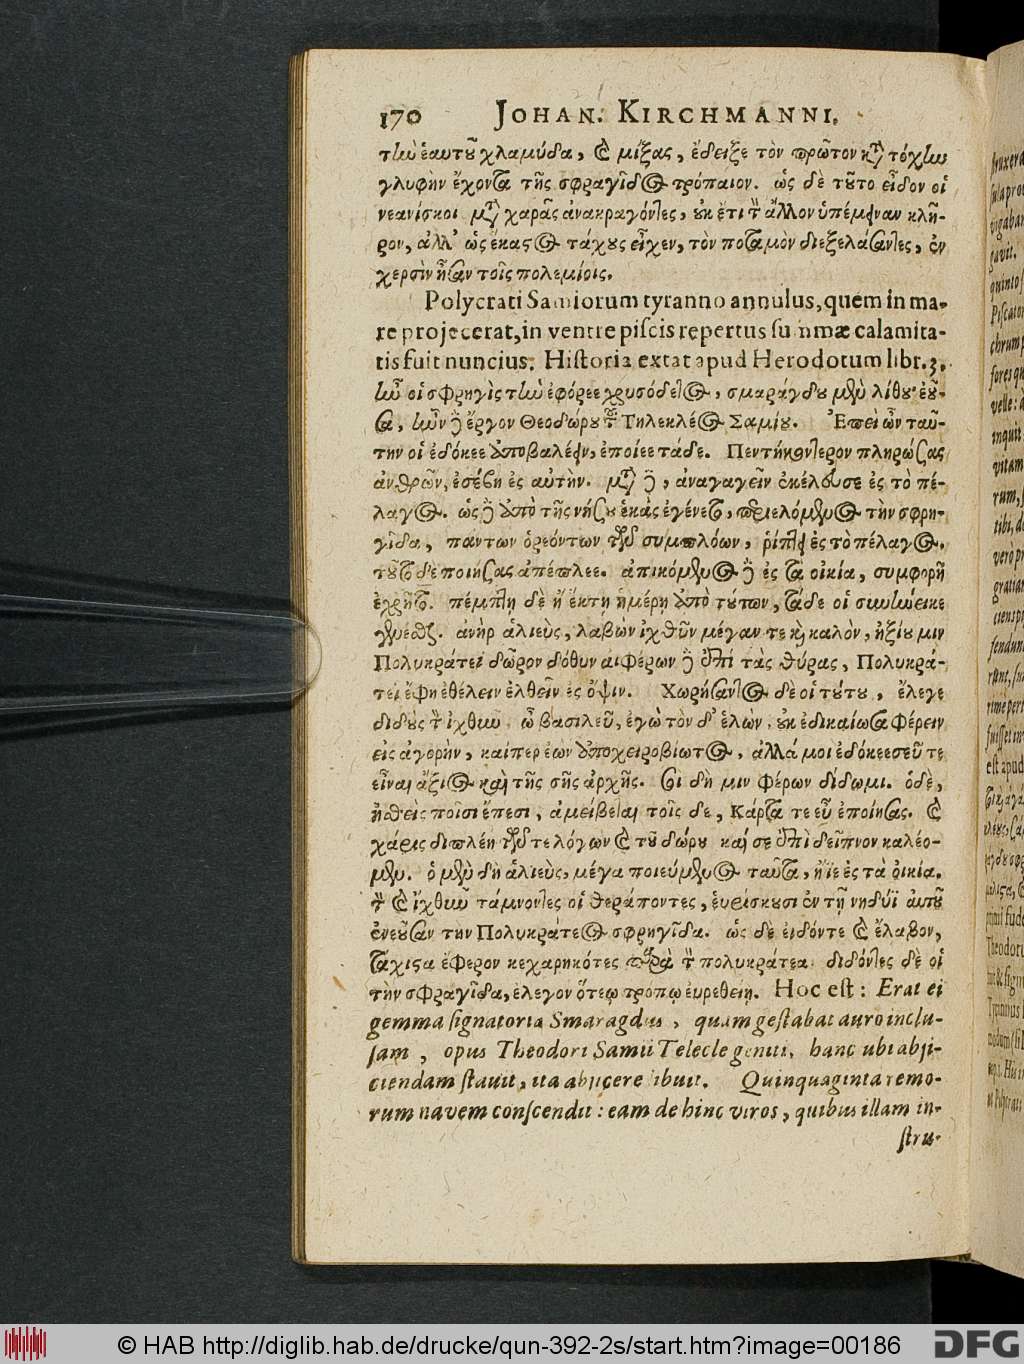 170 JOHAN. KIRCHMANNI.
τὴν ἑαυτοῦ χλαμύδα, καὶ μίξας, ἔδειξε τὸν πρῶτον κατὰ τύχην
γλυφὴν ἔχοντα τῆς σφραγῖδος τρόπαιον. ὡς δὲ τοῦτο εἶδον οἱ
νεανίσκοι μετὰ χαρᾶς ἀνακραγόντες, οὐκ ἔτι τὸν ἄλλον ὑπέμειναν κλῆ-
ρον, ἀλλ' ὡς ἕκαστος τάχους εἶχεν, τὸν ποταμὸν διεξελάσαντες, ἐν
χερσὶν ἦσαν τοῖς πολεμίοις.
Polycrati Samiorum tyranno annulus, quem in ma-
re projecerat, in ventre piscis repertus summæ calamita-
tis fuit nuncius. Historia extat apud Herodotum libr. 3.
ἦν οἱ σφρηγὶς τὴν ἐφόρεε χρυσόδετος, σμαράγδου μὲν λίθου ἐοῦ-
σα, ἦν δὲ ἔργον Θεοδώρου τοῦ Τηλεκλέος Σαμίου. Ἐπεὶ ὦν ταύ-
την οἱ ἐδόκεε ἀποβαλεῖν, ἐποίεε τάδε. Πεντηκόντερον πληρώσας
ἀνδρῶν, ἐσέβη ἐς αὐτὴν. μετὰ δὲ, ἀναγαγεῖν ἐκέλευσε ἐς τὸ πέ-
λαγος. ὡς δὲ ἀπὸ τῆς νήσου ἑκὰς ἐγένετο, περιελόμενος τὴν σφρη-
γῖδα, πάντων ὁρεόντων τῶν συμπλόων, ῥίπτει ἐς τὸ πέλαγος.
τοῦτο δὲ ποιήσας ἀπέπλεε. ἀπικόμενος δὲ ἐς τὰ οἰκία, συμφορῇ
ἐχρῆτο. πέμπτῃ δὲ ἢ ἕκτῃ ἡμέρῃ ἀπὸ τούτων, τάδε οἱ συνήνεικε
γενέσθαι. ἀνὴρ ἁλιεὺς, λαβὼν ἰχθῦν μέγαν τε καὶ καλὸν, ἠξίου μιν
Πολυκράτεϊ δῶρον δόθῆναι φέρων δὲ ἐπὶ τὰς θύρας, Πολυκρά-
τεϊ ἔφη ἐθέλειν ἐλθεῖν ἐς ὄψιν. Χωρήσαντος δὲ οἱ τούτου, ἔλεγε
διδοὺς τὸν ἰχθὺν ὦ βασιλεῦ, ἐγὼ τὸν δ' ἑλὼν οὐκ ἐδικαίωσα φέρειν
εἰς ἀγορὴν, καίπερ ἐὼν ἀποχειροβιωτος, ἀλλά μοι ἐδόκεε σεῦ τε
εἶναι ἄξιος καὶ τῆς σῆς ἀρχῆς. σοὶ δή μιν φέρων δίδωμι. ὁ δὲ,
ἡσθεὶς τοῖσι ἔπεσι, ἀμείβεται τοῖς δε, Κάρτα τε εὖ ἐποίησας. καὶ
χάρις διπλέη τῶν τε λόγων καὶ τοῦ δώρου καί σε ἐπὶ δεῖπνον καλέο-
μεν. ὁ μὲν δὴ ἁλιεὺς, μέγα ποιεύμενος ταῦτα, ἤϊε ἐς τὰ οἰκία.
τὸν καὶ ἰχθὺν τάμνοντες οἱ θεράποντες, ἑυρίσκουσι ἐν τῇ νηδύϊ αὐτοῦ
ἐνεοῦσαν την Πολυκράτεος σφρηγῖδα. ὡς δὲ εἰδόντε καὶ ἔλαβον,
τάχιστα ἔφερον κεχαρηκότες παρὰ τὸν πολυκράτεα διδόντες δὲ οἱ
τὴν σφραγῖδα, ἔλεγον ὅτεῳ τροπῳ ἑυρεθείη. Hoc est: Erat ei
gemma signatoria Smaragdus, quam gestabat auro inclu-
sam, opus Theodori Samii Telecle geniti, hanc ubi abji-
ciendam stavit, ita abjicere ibuit. Quinquaginta remo-
rum navem conscendit: eam dehinc viros, quibus illam in-
stru-
© HAB http://diglib.hab.de/drucke/qun-392-2s/start.htm?image=00186
DFG